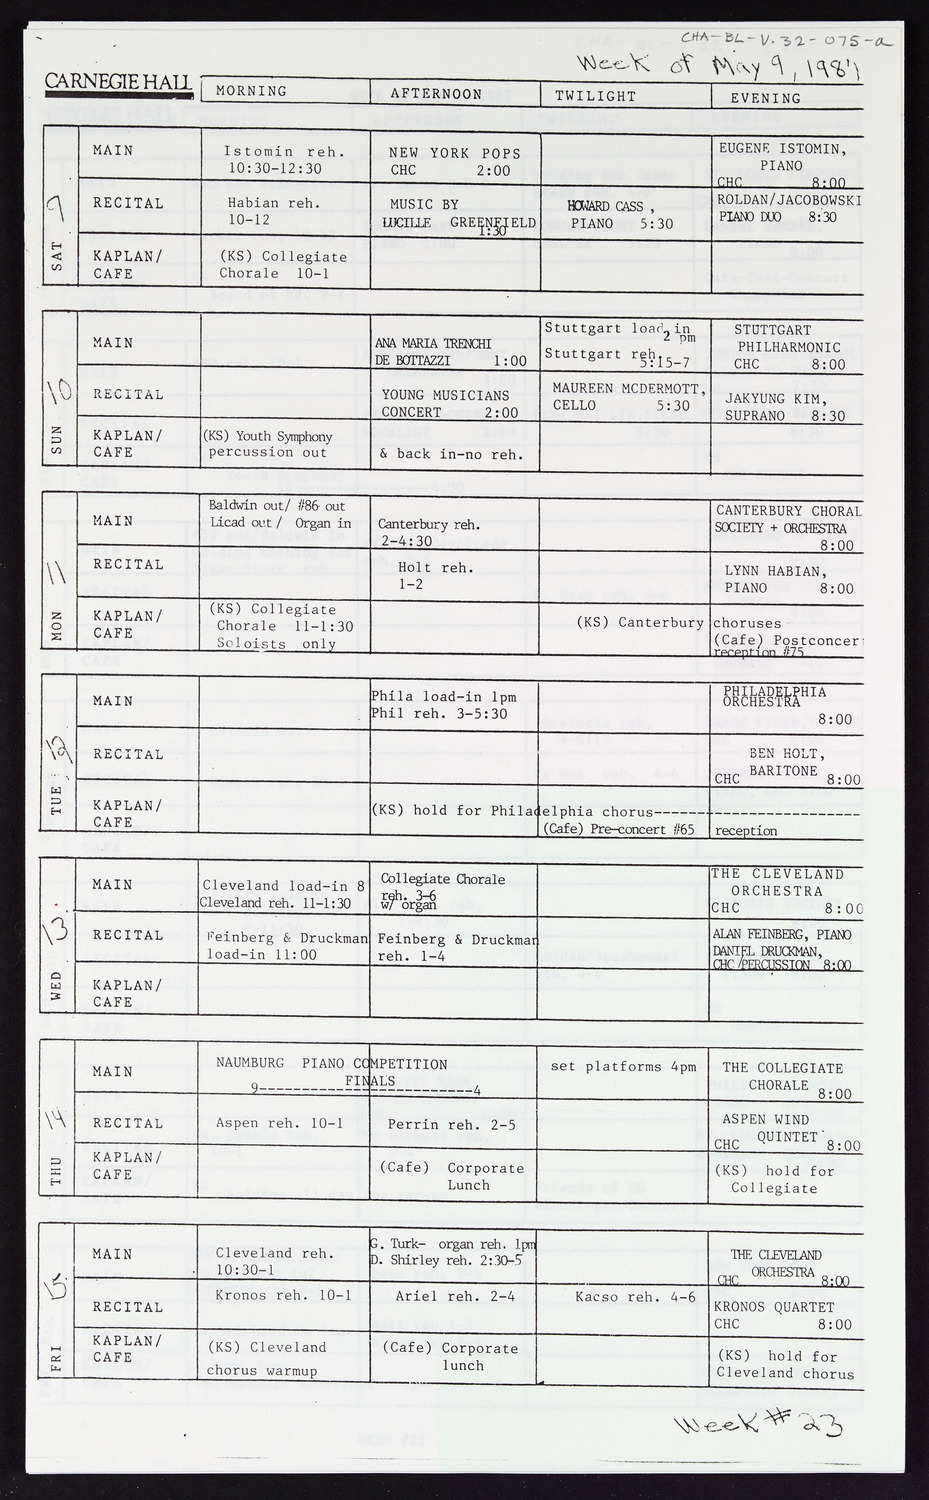 CHA-BL-V.32-075-a
Week of May 9, 1987
CARNEGIE HALL MORNING AFTERNOON TWILIGHT EVENING
SAT 9
MAIN
Istomin reh.
10:30-12:30
NEW YORK POPS
CHC 2:00
EUGENE ISTOMIN,
PIANO
CHC 8:00
RECITAL
Habian reh.
10-12
MUSIC BY
LUCILLE GREENFIELD
1:30
HOWARD CASS,
PIANO 5:30
ROLDAN/JACOBOWSKI
PIANO DUO 8:30
KAPLAN/
CAFE
(KS) Collegiate
Chorale 10-1
SUN 10
MAIN
ANA MARIA TRENCHI
DE BOTTAZZI 1:00
Stuttgart load in
2 pm
Stuttgart reh.
5:15-7
STUTTGART
PHILHARMONIC
CHC 8:00
RECITAL
YOUNG MUSICIANS
CONCERT 2:00
MAUREEN MCDERMOTT,
CELLO 5:30
JAKYUNG KIM,
SUPRANO 8:30
KAPLAN/
CAFE
(KS) Youth Symphony
percussion out
& back in-no reh.
MON 11
MAIN
Baldwin out/ #86 out
Licad out / Organ in
Canterbury reh.
2-4:30
CANTERBURY CHORAL
SOCIETY + ORCHESTRA
8:00
RECITAL
Holt reh.
1-2
LYNN HABIAN,
PIANO 8:00
KAPLAN/
CAFE
(KS) Collegiate
Chorale 11-1:30
Soloists only
(KS) Canterbury choruses
(Cafe) Postconcer
reception #75
TUE 12
MAIN
Phila load-in 1pm
Phil reh. 3-5:30
PHILADELPHIA
ORCHESTRA
8:00
RECITAL
BEN HOLT,
BARITONE
CHC 8:00
KAPLAN/
CAFE
(KS) hold for Philadelphia chorus-----------------------
(Cafe) Pre-concert #65 reception
WED 13
MAIN
Cleveland load-in 8
Cleveland reh. 11-1:30
Collegiate Chorale
reh. 3-6
w/ organ
THE CLEVELAND
ORCHESTRA
CHC 8:00
RECITAL
Feinberg & Druckman
load-in 11:00
Feinberg & Druckman
reh. 1-4
ALAN FEINBERG, PIANO
DANIEL DRUCKMAN,
CHC /PERCUSSION 8:00
KAPLAN/
CAFE
THU 14
MAIN
NAUMBURG PIANO COMPETITION
FINALS
9-----------------------4
set platforms 4pm
THE COLLEGIATE
CHORALE
8:00
RECITAL
Aspen reh. 10-1
Perrin reh. 2-5
ASPEN WIND
QUINTET
CHC 8:00
KAPLAN/
CAFE
(Cafe) Corporate
Lunch
(KS) hold for
Collegiate
FRI 15
MAIN
Cleveland reh.
10:30-1
G. Turk- organ reh. 1pm
D. Shirley reh. 2:30-5
THE CLEVELAND
ORCHESTRA
CHC 8:00
RECITAL
Kronos reh. 10-1
Ariel reh. 2-4
Kacso reh. 4-6
KRONOS QUARTET
CHC 8:00
KAPLAN/
CAFE
(KS) Cleveland
chorus warmup
(Cafe) Corporate
lunch
(KS) hold for
Cleveland chorus
Week #23